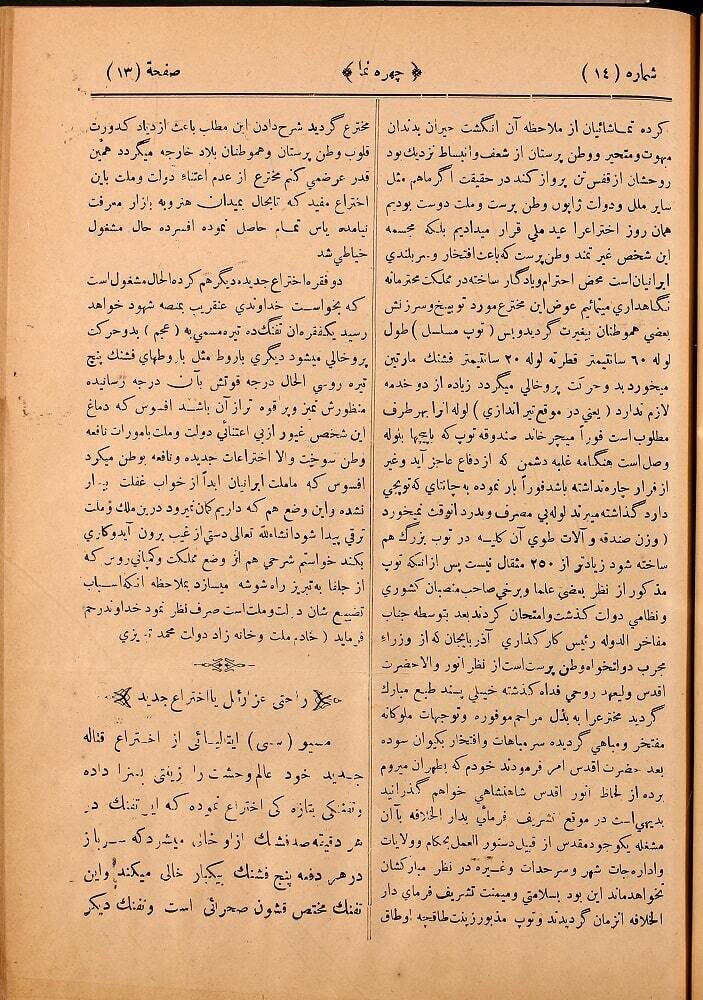 شماره (۱٤)
﴿ چهره نما ﴾
صفحة (۱۳)
کرده تماشائیان از ملاحظه آن انگشت حیران بدندان
مبهوت ومتحیر ووطن پرستان از شعف وانبساط نزدیك بود
روحشان ازقفس تن پرواز کند در حقیقت اگر ماهم مثل
سایر ملل ودولت ژاپون وطن پرست وملت دوست بودیم
همان روز اختراعرا عید ملی قرار میدادیم بلکه مجسمه
این شخص غیرتمند وطن پرست که باعث افتخار وسربلندی
ایرانیان است محض احترام ویادگار ساخته در مملکت محترمانه
نگاهداری مینمائیم عوض این مخترع مورد توبیخ وسرزنش
بعضی هموطنان بیغیرت گردید وبس ( توپ مسلسل ) طول
لوله ٦۰ سانتیمتر قطر ته لوله ۲۰ سانتیمتر فشنك مارتین
میخورد بد وحرکت پروخالی میگردد زیاده از دو خدمه
لازم ندارد ( یعنی در موقع تیر اندازی ) لوله اورا بهر طرف
مطلوب است فوراً میچرخاند صندوقه توپ که باپیچها بلوله
وصل است هنگامه غلبه دشمن که ازدفاع عاجز آید وغیر
از فرار چاره نداشته باشد فوراً بار نموده به چانتای که توپچی
دارد گذاشته میبرند لوله بی مصرف وبدرد آنوقت نمیخورد
( وزن صندقه وآلات طوی آن کلیه در توپ بزرگ هم
ساخته شود زیادتر از ۲٥۰ مثقال نیست پس از انکه توپ
مذکور از نظر بعضی علما وبرخی صاحب منصبان کشوری
ونظامی دولت گذشت وامتحان کردند بعد بتوسطه جناب
مفاخر الدوله رئیس کارگذاری آذربایجان که از وزراء
مجرب دولتخواه وطن پرست است از نظر انور والاحضرت
اقدس ولیعهد روحی فداه گذشته خیلی پسند طبع مبارك
گردید مخترعرا به بذل مراحم موفوره وتوجهات ملوکانه
مفتخر ومباهی گردیده سر مباهات وافتخار بکیوان سوده
بعد حضرت اقدس امر فرمودند خودم که بطهران میروم
برده از لحاظ انور اقدس شاهنشاهی خواهم گذرانید
بدیهی است در موقع تشریف فرمائی بدار الخلافه باآن
مشغله یکوجود مقدس از قبیل دستور العمل بحکام وولایات
واداره جات شهر وسرحدات وغیره در نظر مبارکشان
نخواهد ماند این بود بسلامتی ومیمنت تشریف فرمای دار
الخلافه انزمان گردیدند وتوپ مذبور زینت طاقچه اوطاق
مخترع گردید شرح دادن این مطلب باعث ازدیاد کدورت
قلوب وطن پرستان وهموطنان بلاد خارجه میگردد همین
قدر عرض می کنم مخترع از عدم اعتناء دولت وملت باین
اختراع مفید که تابحال بمیدان هنر وبه بازار معرفت
نیامده یاس تمام حاصل نموده افسرده حال مشغول
خیاطی شد
دو فقره اختراع جدیده دیگر هم کرده الحال مشغول است
که بخواست خداوندی عنقریب بمنصه شهود خواهد
رسید یکفقره ان تفنگ ده تیره مسمی به ( عجم ) بدو حرکت
پروخالی میشود دیگری باروط مثل باروطهای فشنك پنج
تیره روسی الحال درجه قوتش بآن درجه رسانیده
منظورش تمیز وپر قوه تر از آن باشد افسوس که دماغ
این شخص غیور از بی اعتنائی دولت وملت بامورات نافعه
وطن سوخت والا اختراعات جدیده ونافعه بوطن میکرد
افسوس که ماملت ایرانیان ابداً از خواب غفلت بیدار
نشده واین وضع هم که داریم گمان نمیرود در بن ملك وملت
ترقی پیدا شود انشاءالله تعالی دستی از غیب برون آید وکاری
بکند خواستم شرحی هم از وضع مملکت وکمپانی روس که
از جلفا به تبریز راه شوشه میسازد بملاحظه انکه اسباب
تضییع شان دولت وملت است صرف نظر نمود خداوند رحم
فرماید ( خادم ملت وخانه زاد دولت محمد تبریزی
راحتی عزرائل یا اختراع جدید
مسیو (سی) ایتالیائی از اختراع قتاله
جدید خود عالم وحشت را زینتی بسزا داده
وتفنگی بتازه کی اختراع نموده که این تفنك در
هر دقیقه صد فشنك از او خالی میشود که سرباز
در هر دفعه پنج فشنك بیکبار خالی میکند واین
تفنك مختص قشون صحرائی است وتفنك دیگر